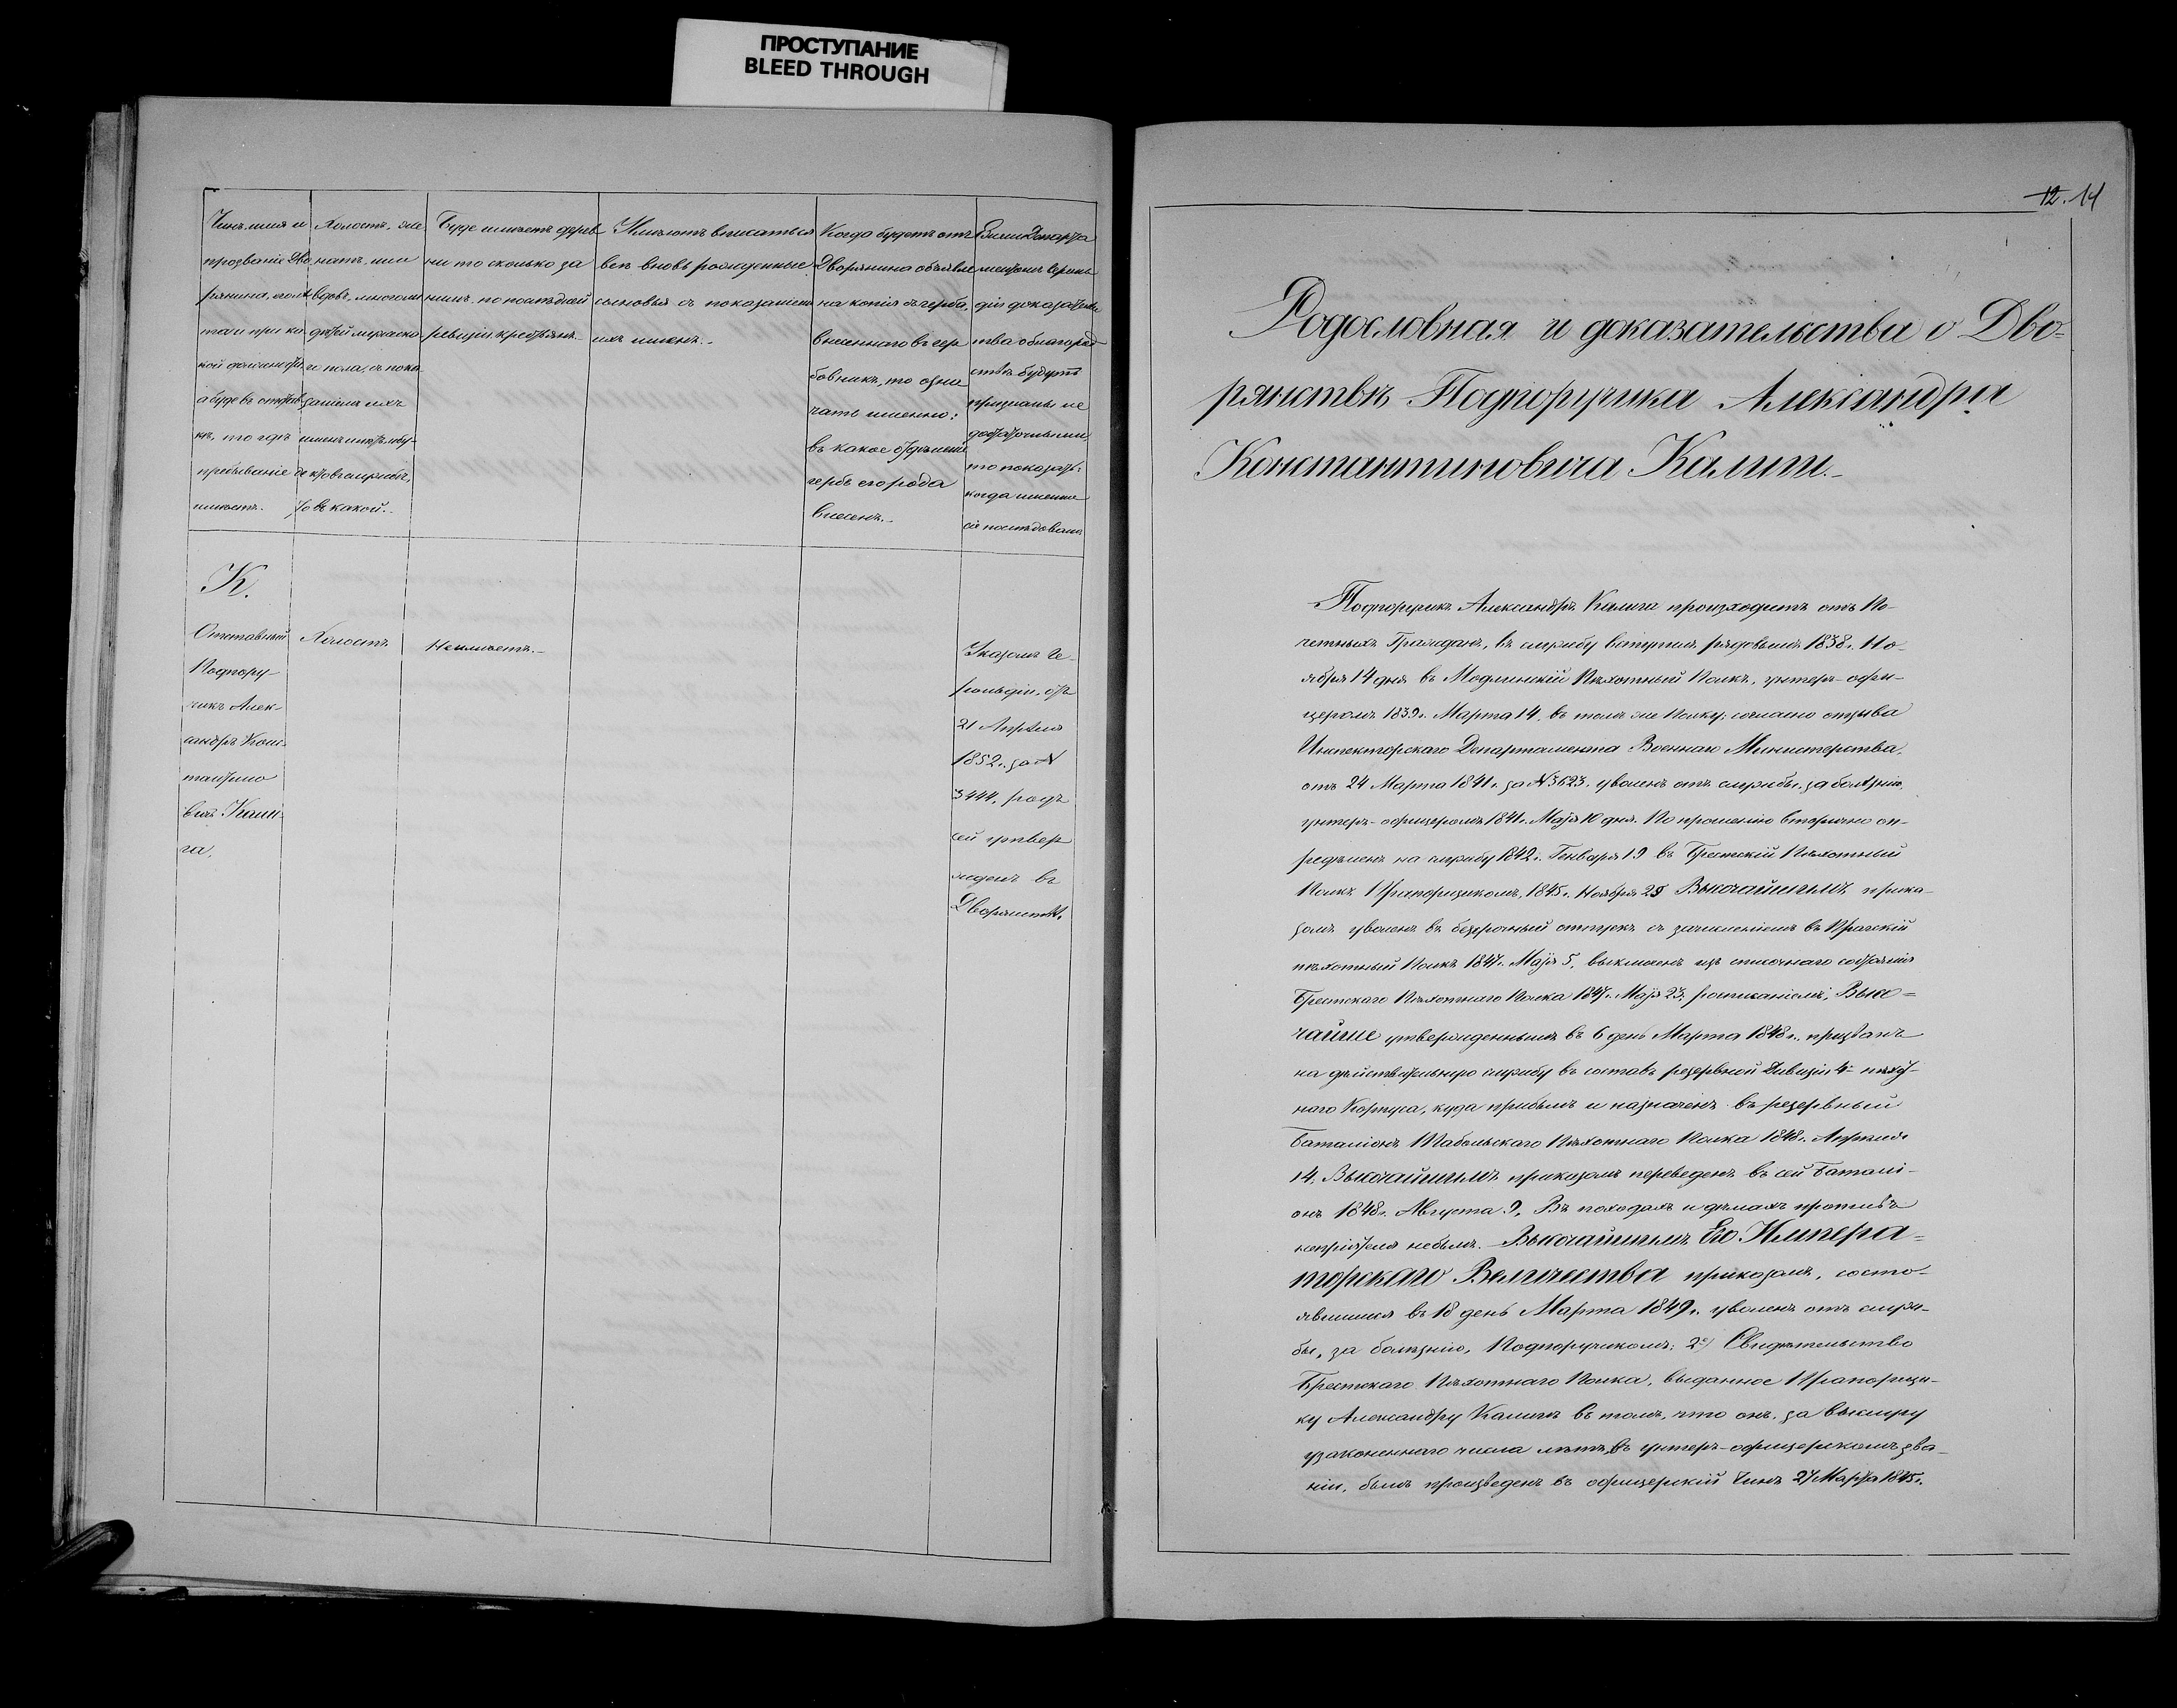 ПРОСТУПАНИЕ
BLEED THROUGH
Чинъ, имя и
прозваніе Дво
рянина, его лѣ
та и при ка
кой должности,
а буде въ отстав
кѣ, то гдѣ
пребываніе
имѣетъ.
Холостъ, же
натъ, или
вдовъ, много ли
дѣтей мужеска
го пола, съ пока
заніемъ ихъ
именъ и лѣтъ, и бу
де кто въ службѣ,
то въ какой.
Буде имѣетъ дерев
ни то сколько за
нимъ, по послѣдней
ревизіи, крестьянъ.
Имѣютъ вписаться
всѣ вновь рожденные
сыновья съ показаніем
ихъ именъ.
Когда будетъ отъ
Дворянина объявле
на копія съ герба,
внесеннаго въ гер
бовникъ, то озна
чать именно:
въ какое отдѣленіе
гербъ его рода
внесенъ.
Если Департа
ментомъ Героль
діи доказатель
ства о благород
ствѣ будутъ
признаны не
достаточными,
то показать:
когда именно
сіе послѣдовало.
К.
Отставный
Подпору-
чикъ Алек-
сандръ Конс-
тантино
вичъ Кали
га.
Холостъ
Неимѣетъ.
Указомъ Ге-
рольдіи, отъ
21 Апрѣля
1852 г. за №
3444, родъ
сей утвер
жденъ въ
Дворянствѣ.
12. 14
Родословная и доказательства о Дво-
рянствѣ Подпоручика Александра
Константиновича Калиги.
Подпоручикъ Александръ Калига произходитъ отъ По-
четныхъ Гражданъ, въ службу вступилъ рядовымъ 1838 г. Но-
ября 14 дня въ Модлинскій Пѣхотный Полкъ, унтеръ-офи-
церомъ 1839 г. Марта 14, въ томъ же Полку; согласно отзыва
Инспекторскаго Департамента Военнаго Министерства,
отъ 24 Марта 1841 г. за № 3623, уволенъ отъ службы, за болѣзнію,
унтеръ-офицеромъ 1841 г. Маія 10 дня. По прошенію вторично оп-
редѣленъ на службу 1842 г. Генваря 19 въ Брестскій Пѣхотный
Полкъ Прапорщикомъ, 1845 г. Ноября 25 Высочайшимъ прика-
зомъ уволенъ въ безсрочный отпускъ съ зачисленіемъ въ Пражскій
пѣхотный Полкъ 1847 г. Маія 5, выключенъ изъ списочнаго состоянія
Брестскаго Пѣхотнаго Полка 1847 г. Маія 23; росписаніемъ, Высо-
чайше утвержденнымъ въ 6 день Марта 1848 г., призванъ
на дѣйствительную службу въ составъ резервной Дивизіи 4го пѣхот-
наго Корпуса, куда прибылъ и назначенъ въ резервный
Баталіонъ Табольскаго Пѣхотнаго Полка 1848 г. Апрѣля
14, Высочайшимъ приказомъ переведенъ въ сей Баталі-
онъ 1848 г. Августа 9, Въ походахъ и дѣлахъ противъ
непріятеля небылъ. Высочайшимъ Его Импера-
торскаго Величества приказомъ, состо-
явшимся въ 18 день Марта 1849 г. уволенъ отъ служ-
бы, за болѣзнію, Подпоручикомъ; 2е) Свидѣтельство
Брестскаго Пѣхотнаго Полка, выданное Прапорщи-
ку Александру Калигѣ въ томъ, что онъ, за выслугу
узаконеннаго числа лѣтъ, въ унтеръ-офицерскомъ зва-
ніи, былъ произведенъ въ офицерскій Чинъ 27 Марта 1845 г.